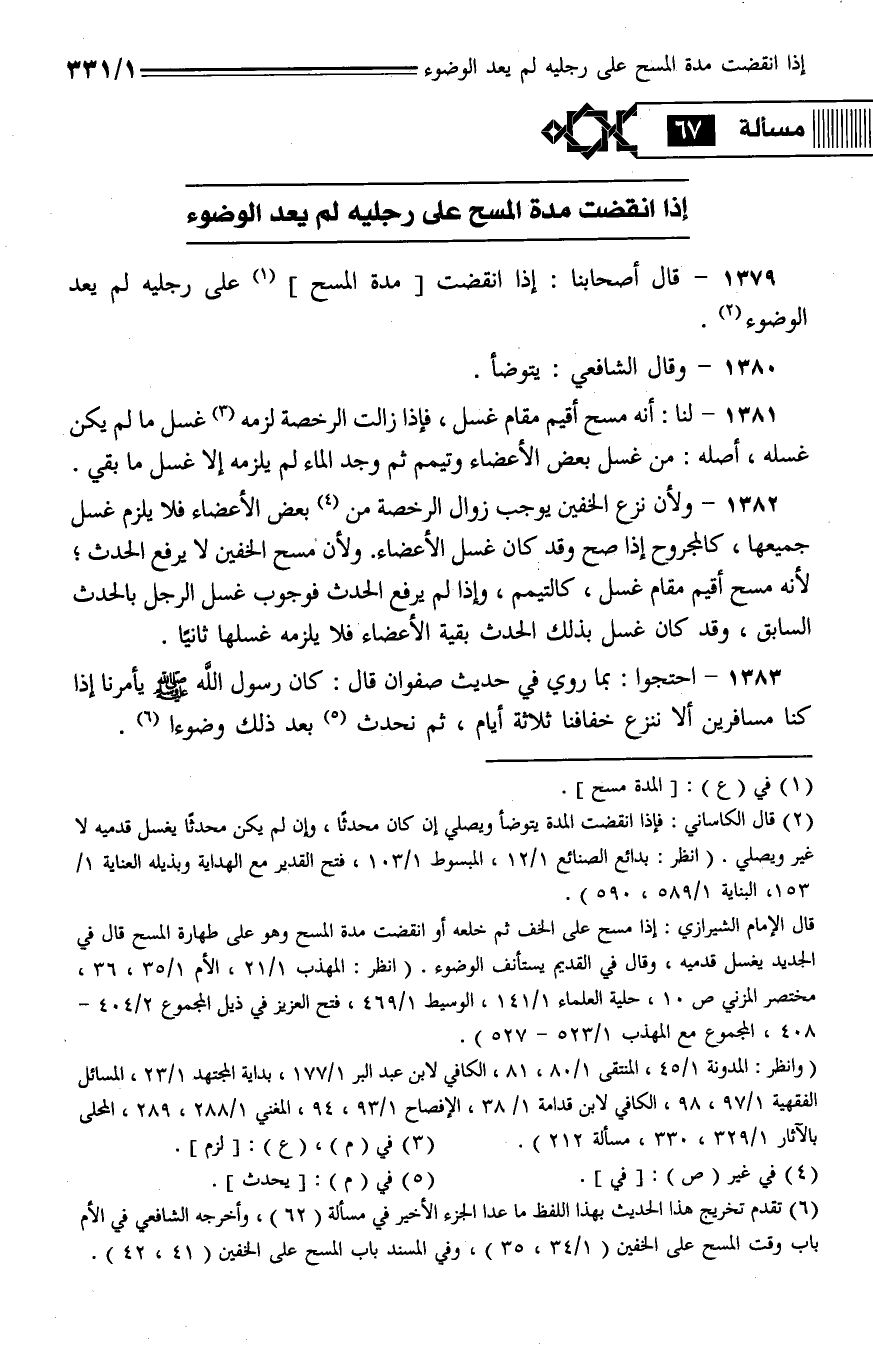 إذا انقضت مدة المسح على رجليه لم يعد الوضوء ٣٣١/١
مسألة ٦٧
إذا انقضت مدة المسح على رجليه لم يعد الوضوء
١٣٧٩ – قال أصحابنا : إذا انقضت [ مدة المسح ] (١) على رجليه لم يعد
الوضوء (٢) .
١٣٨٠ – وقال الشافعي : يتوضأ .
١٣٨١ – لنا : أنه مسح أقيم مقام غسل ، فإذا زالت الرخصة لزمه (٣) غسل ما لم يكن
غسله ، أصله : من غسل بعض الأعضاء وتيمم ثم وجد الماء لم يلزمه إلا غسل ما بقي .
١٣٨٢ – ولأن نزع الخفين يوجب زوال الرخصة من (٤) بعض الأعضاء فلا يلزم غسل
جميعها ، كالمجروح إذا صح وقد كان غسل الأعضاء. ولأن مسح الخفين لا يرفع الحدث ؛
لأنه مسح أقيم مقام غسل ، كالتيمم ، وإذا لم يرفع الحدث فوجوب غسل الرجل بالحدث
السابق ، وقد كان غسل بذلك الحدث بقية الأعضاء فلا يلزمه غسلها ثانيًا .
١٣٨٣ – احتجوا : بما روي في حديث صفوان قال : كان رسول اللَّه ﷺ يأمرنا إذا
كنا مسافرين ألا ننزع خفافنا ثلاثة أيام ، ثم نحدث (٥) بعد ذلك وضوءا (٦) .
(١) في ( ع ) : [ المدة مسح ] .
(٢) قال الكاساني : فإذا انقضت المدة يتوضأ ويصلي إن كان محدثًا ، وإن لم يكن محدثًا يغسل قدميه لا
غير ويصلي . ( انظر : بدائع الصنائع ١٢/١ ، المبسوط ١٠٣/١ ، فتح القدير مع الهداية وبذيله العناية ١/
١٥٣، البناية ٥٨٩/١ ، ٥٩٠ ) .
قال الإمام الشيرازي : إذا مسح على الخف ثم خلعه أو انقضت مدة المسح وهو على طهارة المسح قال في
الجديد يغسل قدميه ، وقال في القديم يستأنف الوضوء . ( انظر : المهذب ٢١/١ ، الأم ٣٥/١ ، ٣٦ ،
مختصر المزني ص ١٠ ، حلية العلماء ١٤١/١ ، الوسيط ٤٦٩/١ ، فتح العزيز في ذيل المجموع ٤٠٤/٢ –
٤٠٨ ، المجموع مع المهذب ٥٢٣/١ – ٥٢٧ ) .
( وانظر : المدونة ٤٥/١ ، المنتقى ٨٠/١ ، ٨١ ، الكافي لابن عبد البر ١٧٧/١ ، بداية المجتهد ٢٣/١ ، المسائل
الفقهية ٩٧/١ ، ٩٨ ، الكافي لابن قدامة ١/ ٣٨ ، الإفصاح ٩٣/١ ، ٩٤ ، المغني ٢٨٨/١ ، ٢٨٩ ، المحلى
بالآثار ٣٢٩/١ ، ٣٣٠ ، مسألة ٢١٢ ) . (٣) في ( م ) ، ( ع ) : [ لزم ] .
(٤) في غير ( ص ) : [ في ] . (٥) في ( م ) : [ يحدث ] .
(٦) تقدم تخريج هذا الحديث بهذا اللفظ ما عدا الجزء الأخير في مسألة ( ٦٢ ) ، وأخرجه الشافعي في الأم
باب وقت المسح على الخفين ( ٣٤/١ ، ٣٥ ) ، وفي المسند باب المسح على الخفين ( ٤١ ، ٤٢ ) .